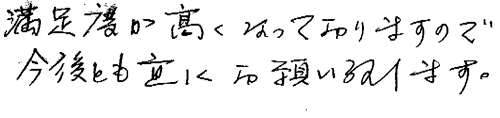 満足度が高くなっておりますので
今後とも宜しくお願い致します。